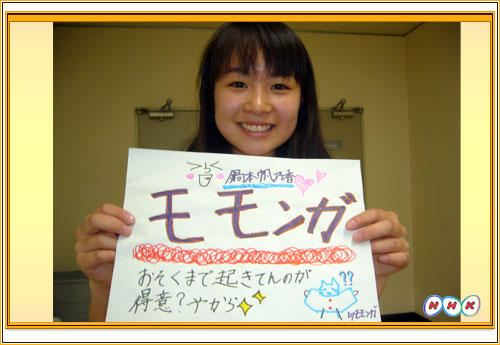 鍋本帆乃香
モモンガ
おそくまで起きてんのが
得意?やから
??
byモモンガ
NHK